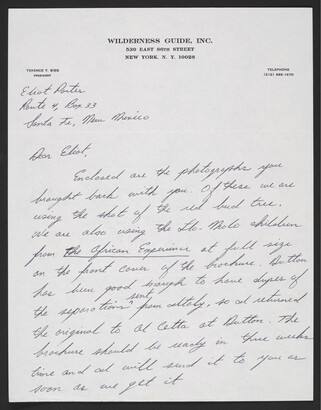 WILDERNESS GUIDE, INC.
530 EAST 86TH STREET
NEW YORK, N. Y. 10028
TERENCE T. 
PRESIDENT
TELEPHONE
Eliot Porter
Route 4, Box 33
Santa Fe, New Mexico
Dear Eliot,
Enclosed are the photographs you
brought back with you. Of these we are
using the shot of the red bud tree.
We are also using the children
from the African Experience at full size
on the front cover of the brochure. Dutton
has been good enough to have dupes of
the separations sent from Italy, so I returned
the original to Al Cetta at Dutton. The
brochure should be ready in three weeks
time and I will send it to you as
soon as we get it